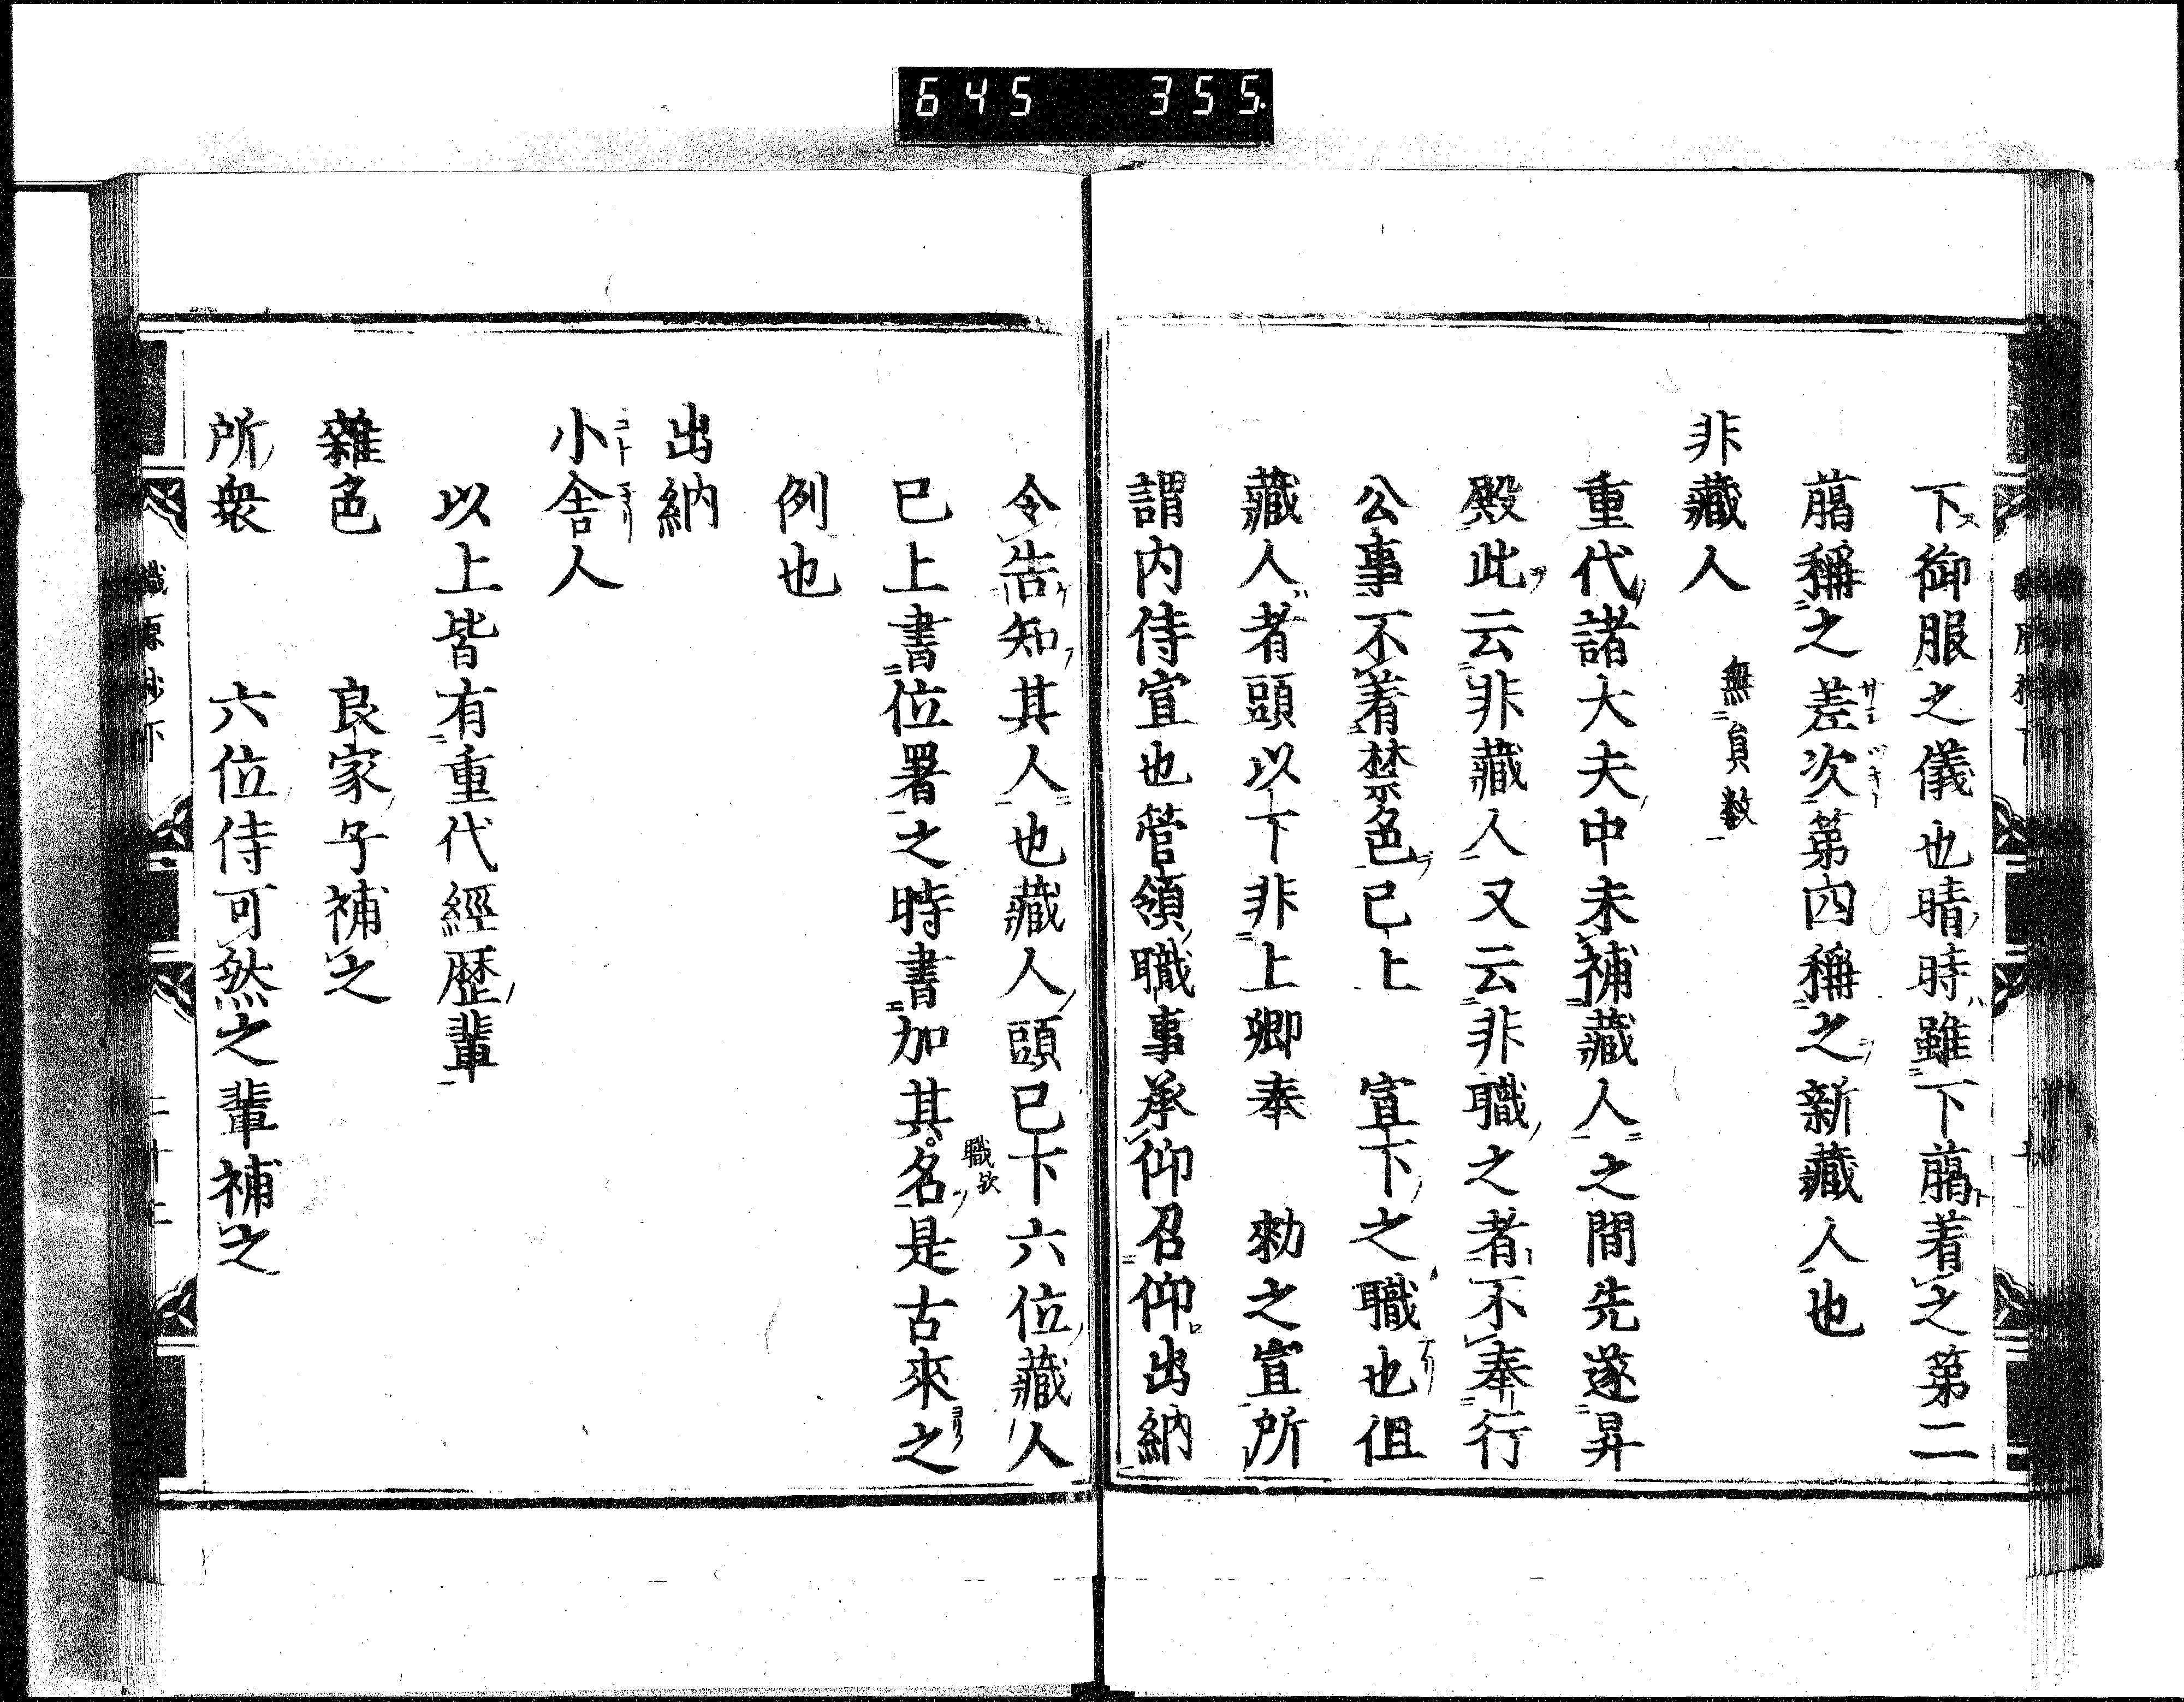 645 355.
下御服之儀也晴時雖下﨟着之第二
﨟稱之差次第四稱之新藏人也
非藏人 無員数
重代諸大夫中未補藏人之間先遂昇
殿此云非藏人又云非職之者不奉行
公事不着禁色已上 宣下之職也但
藏人者頭以下非上卿奉 勅之宣所
謂内侍宣也管領職事承仰召仰出納
令告知其人也藏人頭已下六位藏人
已上書位署之時書加其名是古來之
職歟
例也
出納
小舎人
以上皆有重代經歴輩
雜色 良家子補之
所衆 六位侍可然之輩補之
職原抄下